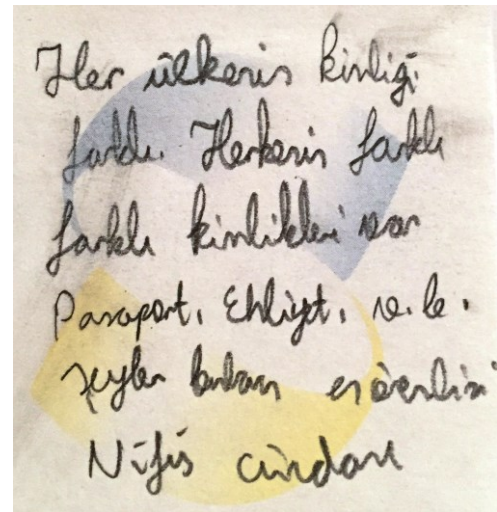 Her ülkenin kimliği
farklı. Herkesin farklı
farklı kimlikleri var
Pasaport, Ehliyet, v.b.
şeyler bunların en önemlisi
Nüfus cüzdanı